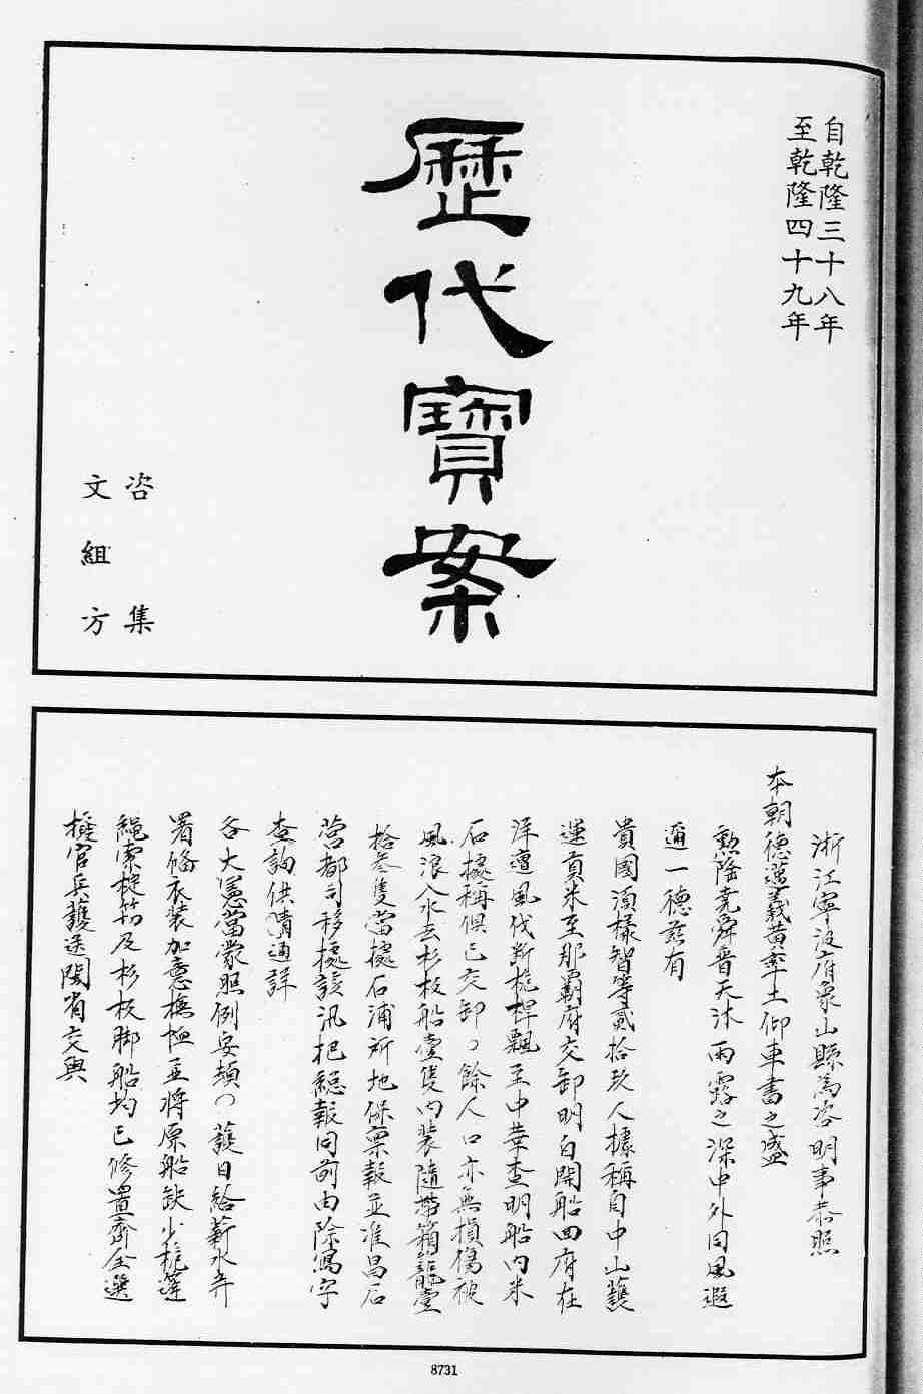 自乾隆三十八年
至乾隆四十九年
歷代寶案
咨集
文組方
浙江寧波府象山縣為咨明事恭照
本朝德邁羲黃率土仰車書之盛
勲隆堯舜普天沐雨露之深中外同風遐
邇一德茲有
貴國須樣智等貳拾玖人據稱自中山護
運貢米至那霸府交卸明白開船回府在
洋遭風伐斷桅桿飄至中華查明船內米
石據稱俱已交卸餘人口亦無損傷被
風浪入水去杉板船壹隻內裝隨帶箱籠壹
拾叁隻當據石浦所地保稟報並准昌石
營都司移據該汛把總報同前由除寫字
查詢供情通詳
各大憲當蒙照例安頓護日給薪水弁
署條衣裝加意撫恤並將原船缺少桅篷
繩索椗筋及杉板脚船均已修置齊全選
撥官兵護送閩省交與
8731